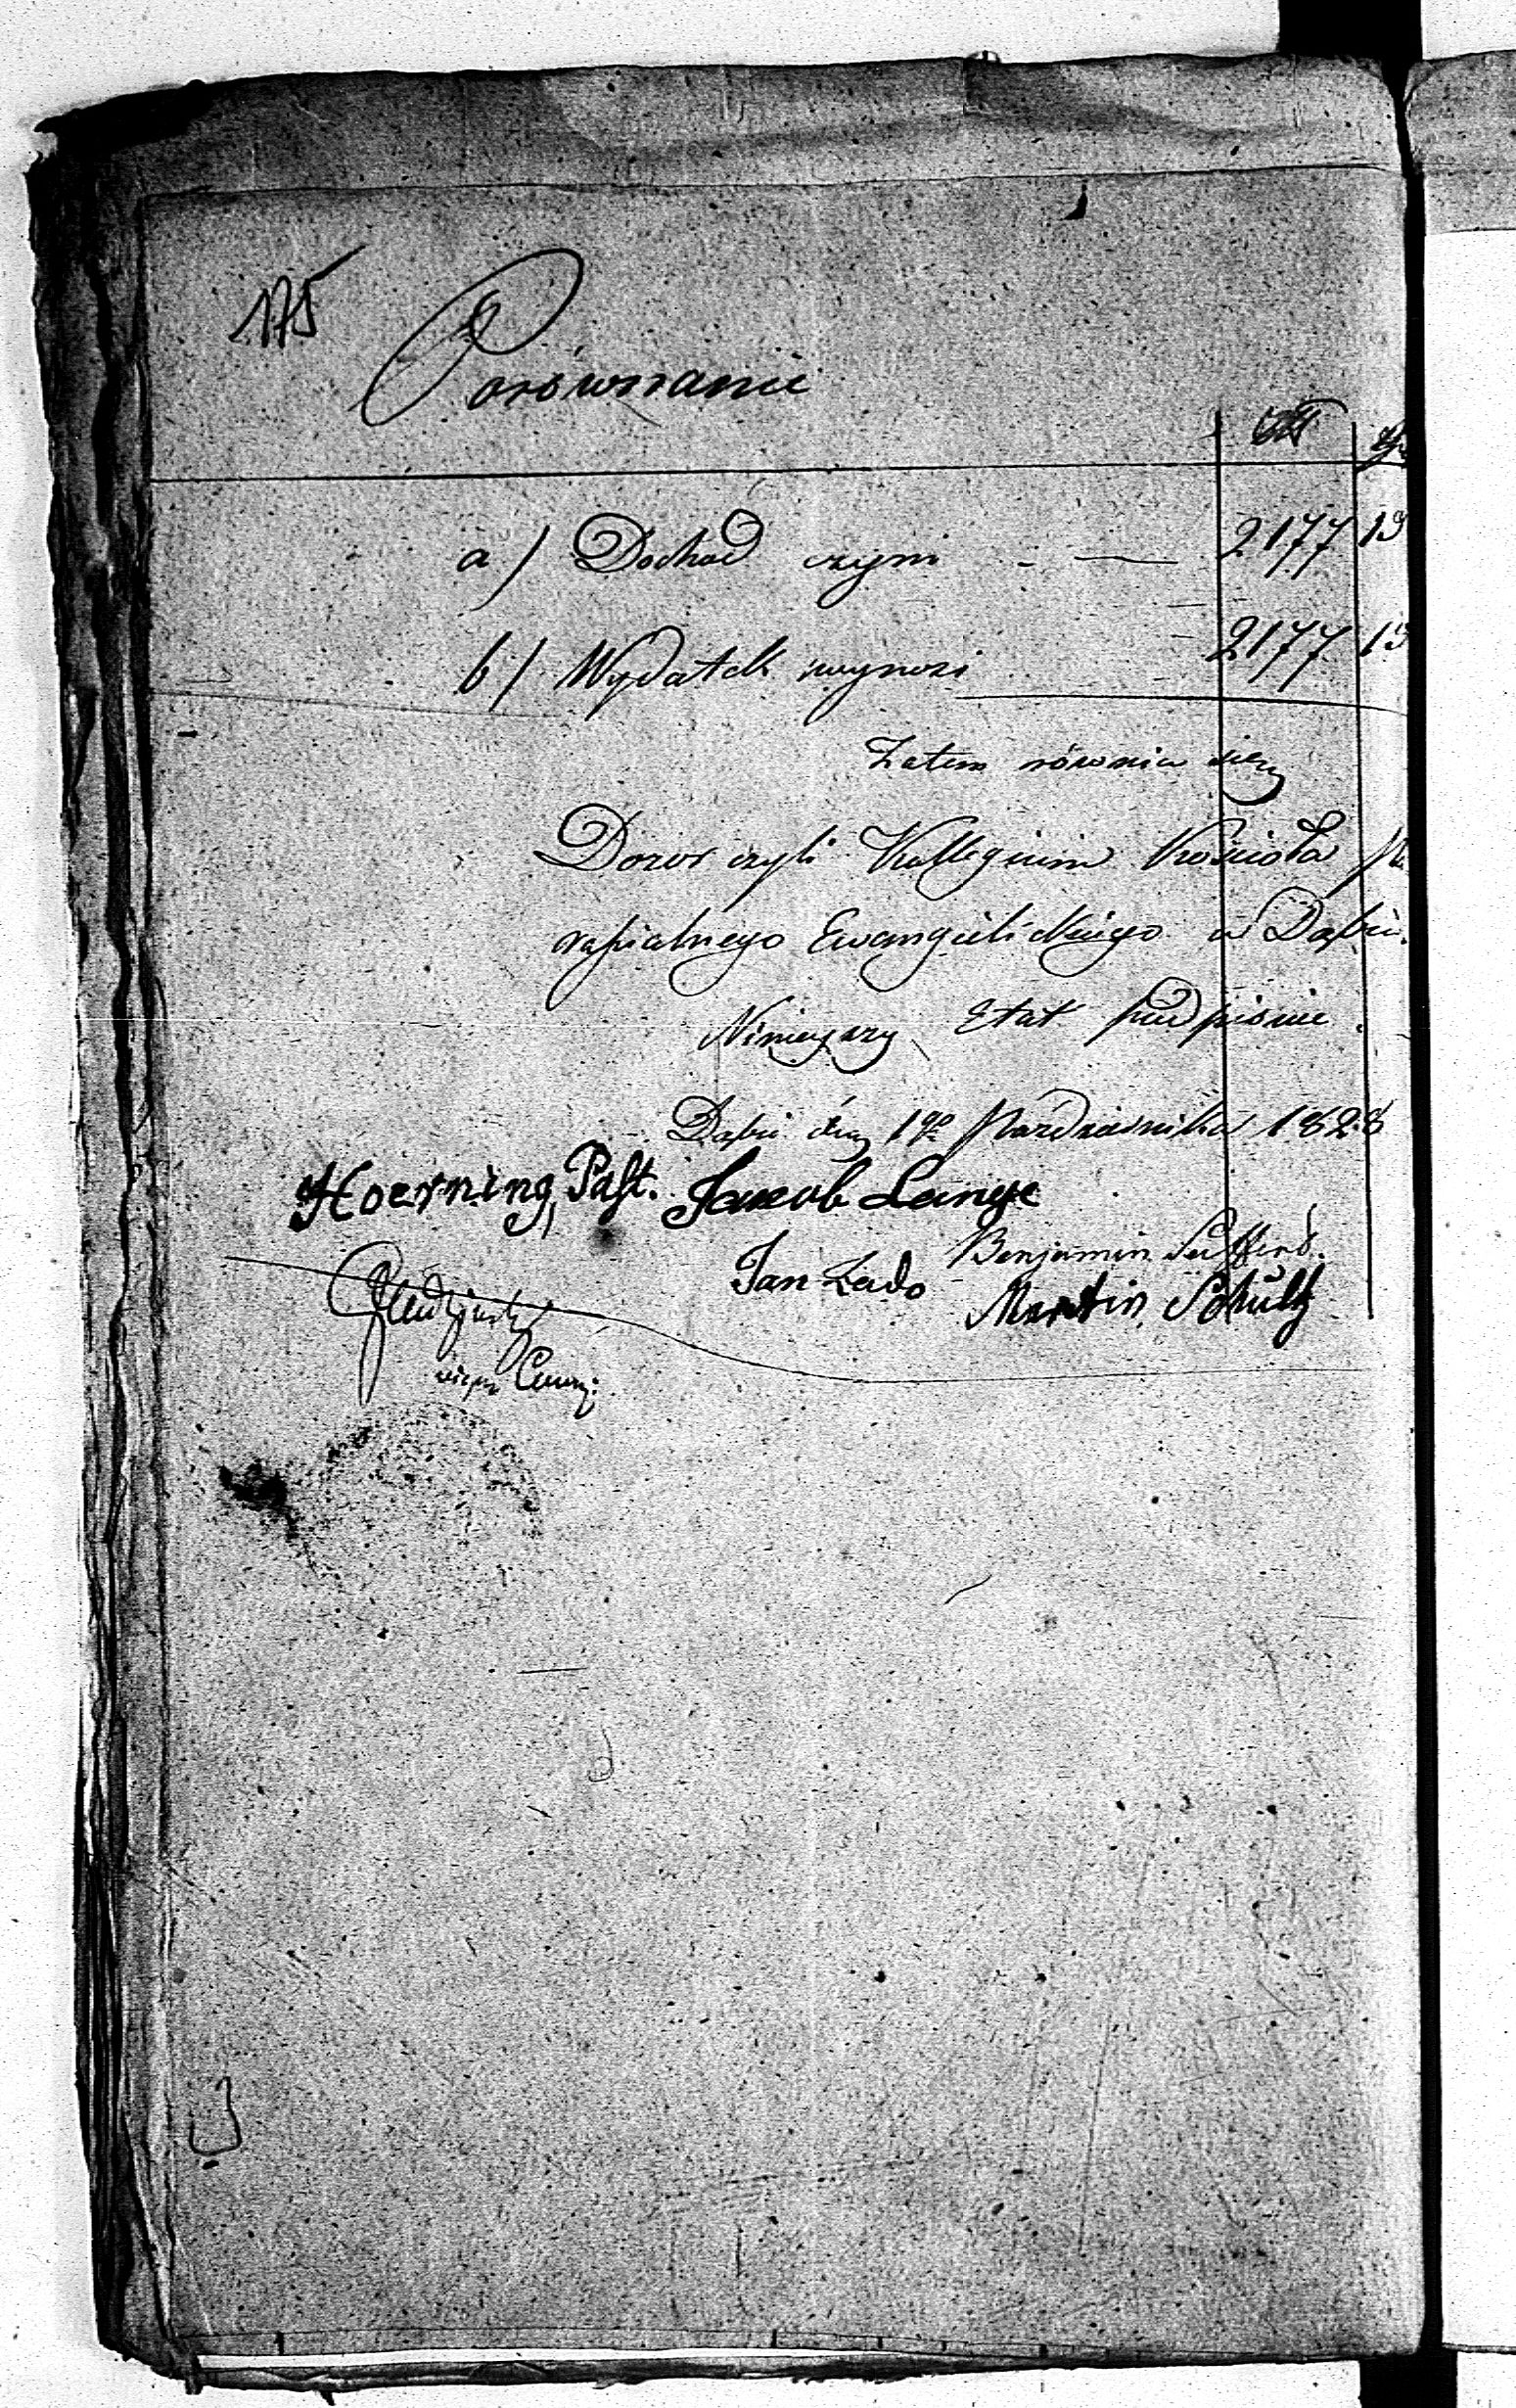 175
Porównanie
a) Dochod czyni - — 2177 13
b) Wydatek wynosi 2177 13
Zatem równia się
Dozor czyli Kollegium Kościoła Pa
rafialnego Ewangelickiego w Dąbiu.
Ninieyszy Etat podpisuie.
Dąbie dnia 19º Pazdziernika 1828
Hoerning, Past. Jakob Lange
Jan Lado Benjamin
Martin Schultz